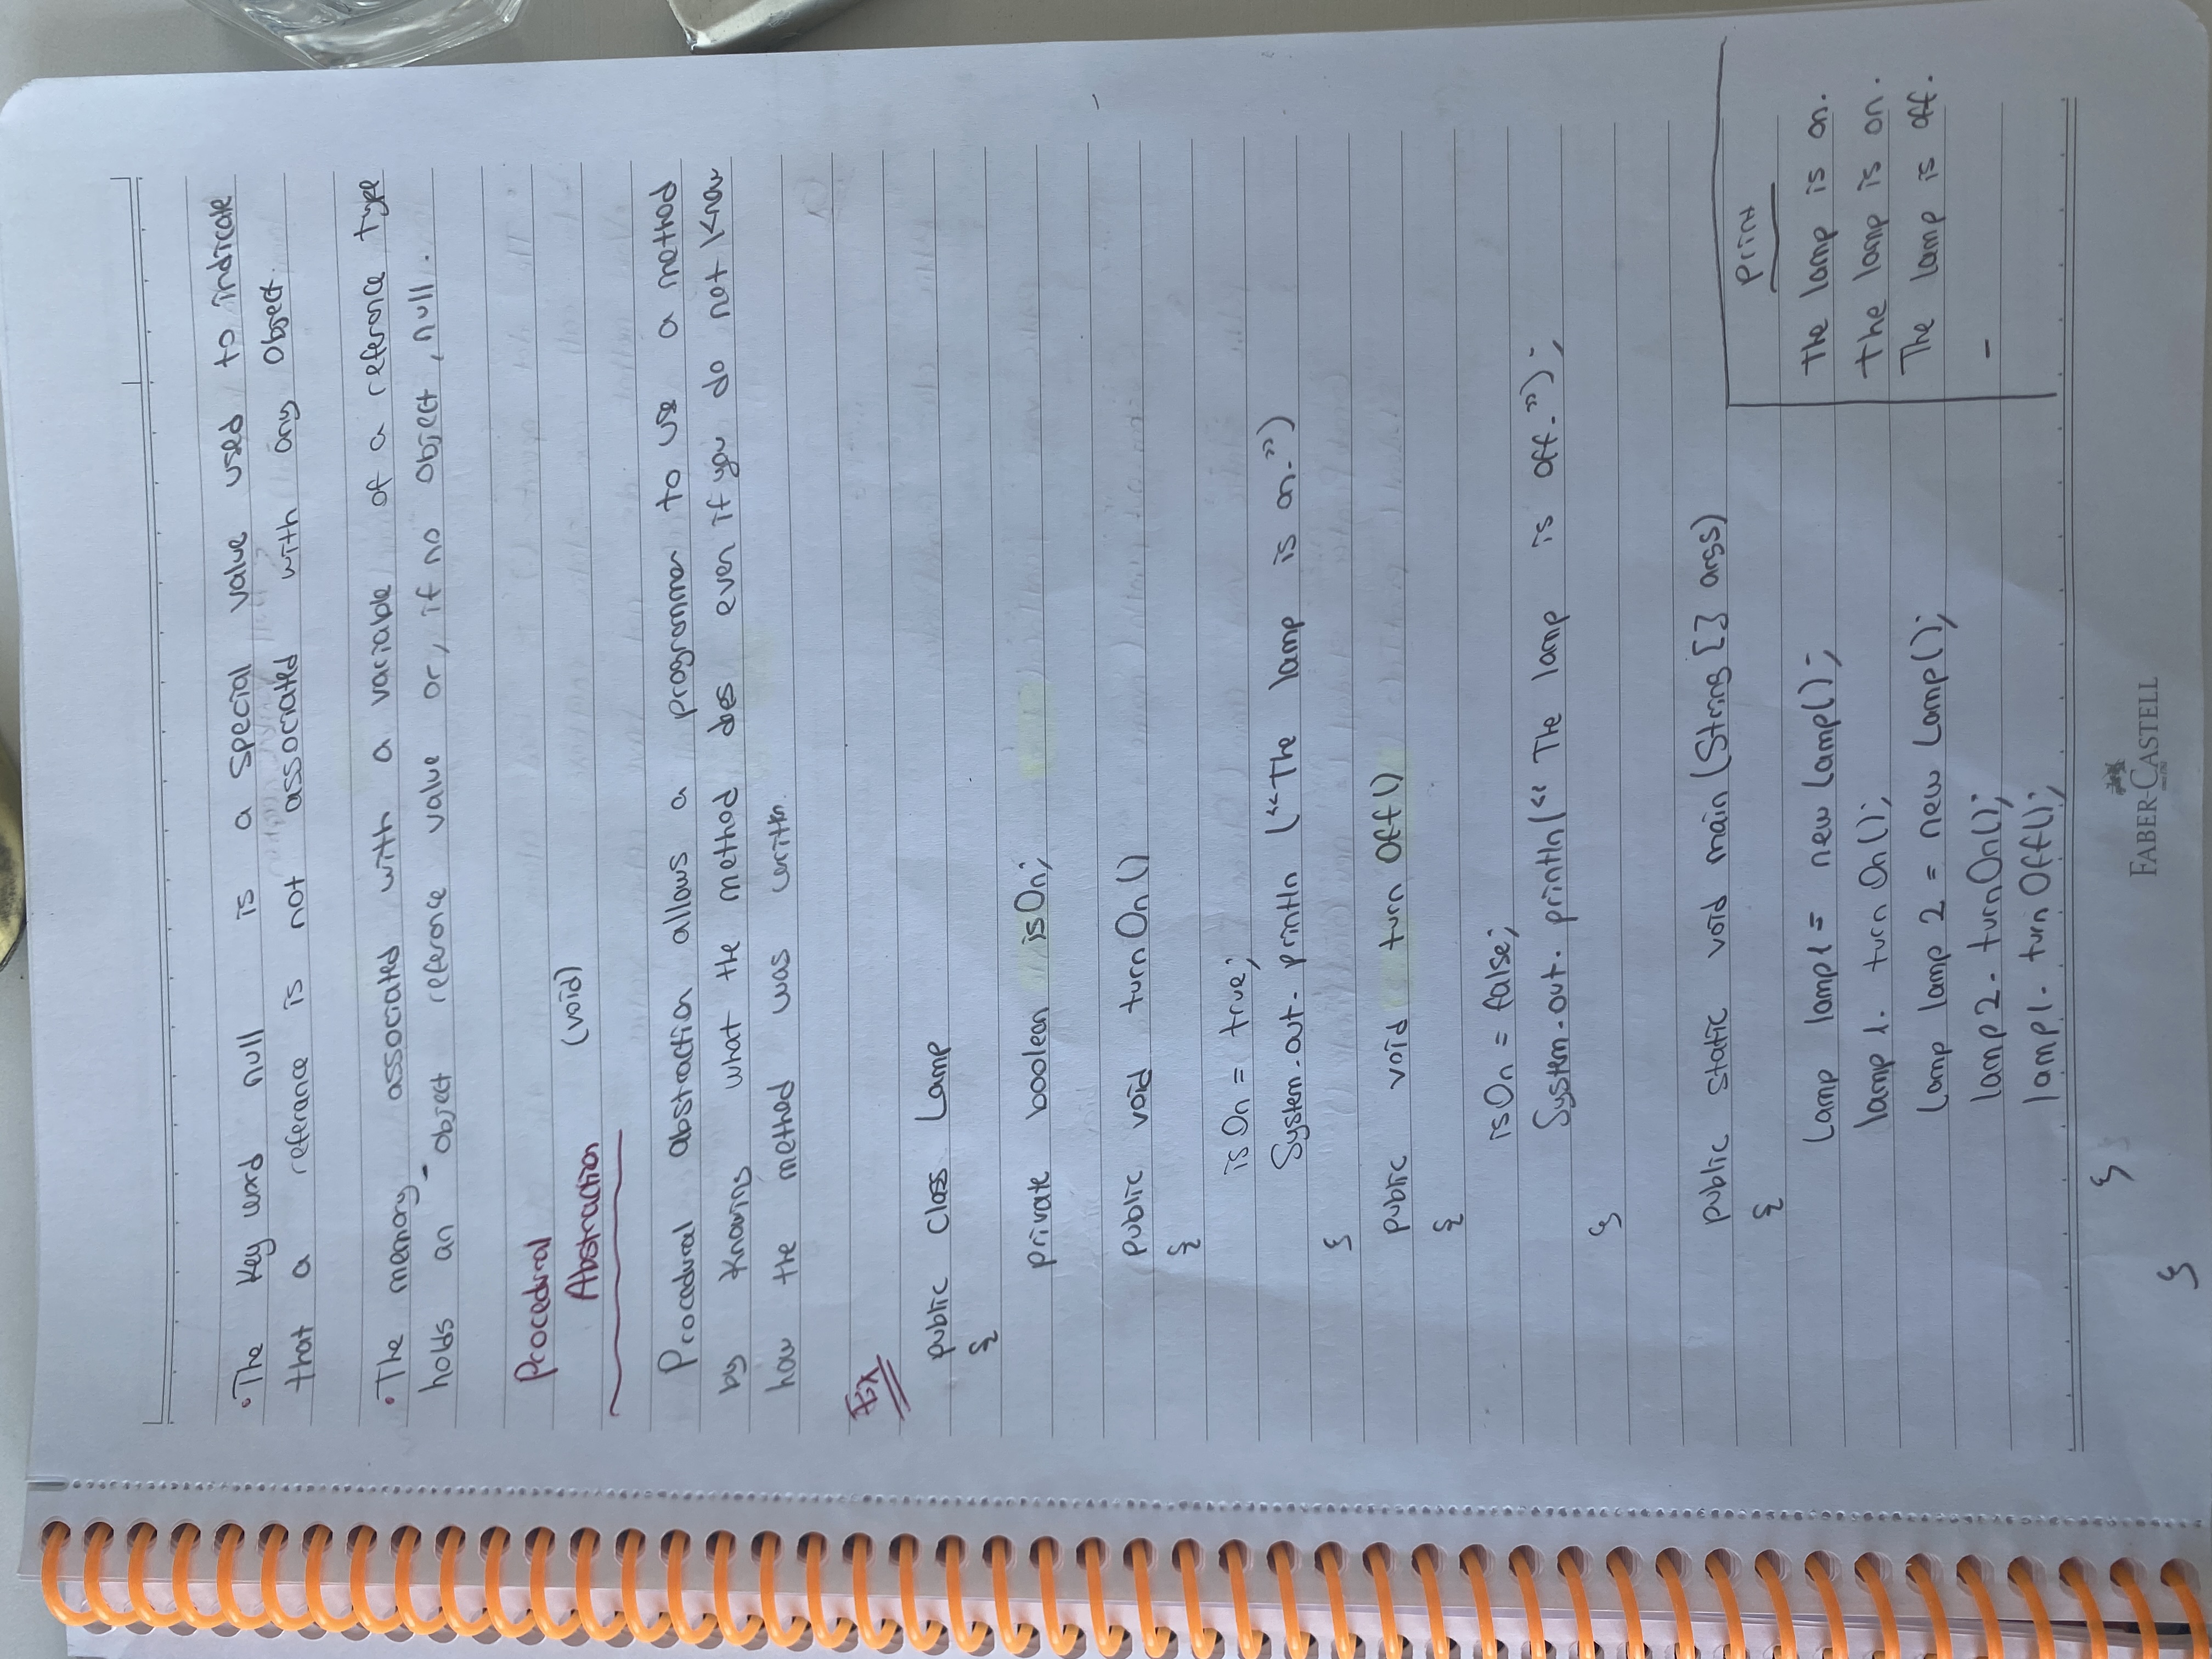 •The key word null is a special value used to indicate
that a referance is not associated with any Object.
•The memory associated with a variable of a reference type
holds an object reference value or, if no object, null.
Procedural
Abstraction (void)
Procedural abstraction allows a programmer to use a method
by knowing what the method does even if you do not know
how the method was written.
Ex
public class Lamp
{
private boolean isOn;
public void turnOn()
{
isOn = true;
System.out.println (“The lamp is on.”)
}
public void turnOff()
{
isOn = false;
System.out.println(“The lamp is off.”);
}
public static void main (String [] args)
{
Lamp lamp1 = new Lamp();
lamp1. turnOn();
Lamp lamp 2 = new Lamp();
lamp2. turnOn();
lamp1. turnOff();
}
}
print
The lamp is on.
The lamp is on.
The lamp is off.
-
FABER-CASTELL